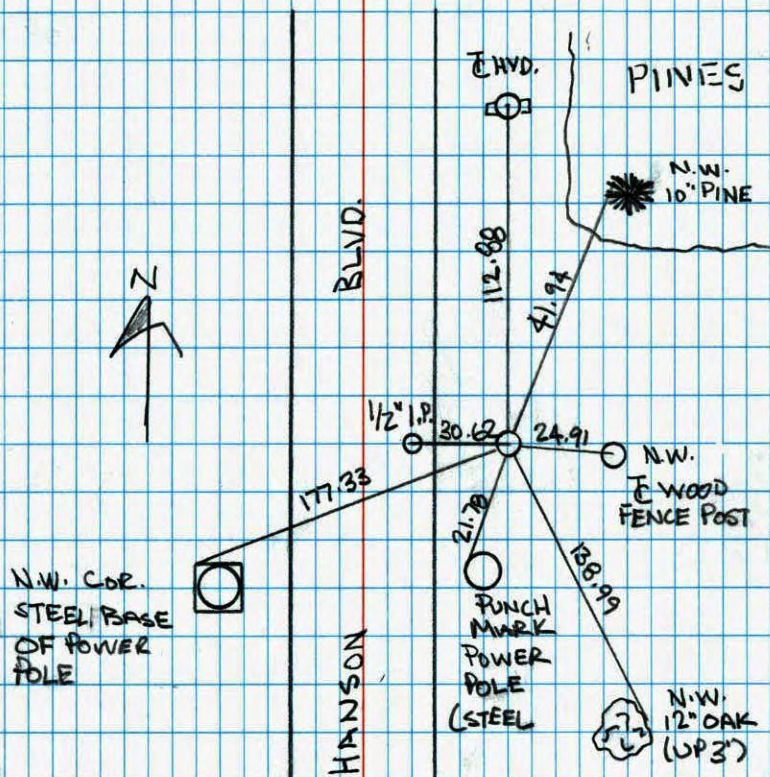 T/C HYD.
PINES
N.W.
10" PINE
N
BLVD.
112.88
41.94
1/2" I.P.
30.62
24.91
N.W.
T/C WOOD
FENCE POST
177.33
21.78
138.99
N.W. COR.
STEEL BASE
OF POWER
POLE
PUNCH
MARK
POWER
POLE
(STEEL
HANSON
N.W.
12" OAK
(UP 3')